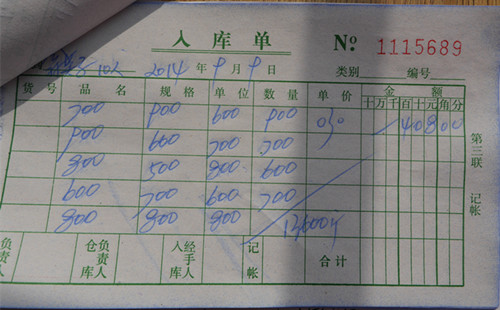 入库单 No 1115689
2014年9月9日 类别 编号
货号 品名 规格 单位 数量 单价 金额
十万千百十元角分
700 900 600 900 0.30 408.00
900 600 700 700
800 500 800 600
600 700 600 700
800 800 800
负责人 仓库负责人 入库经手人 记帐 合计
第三联 记帐